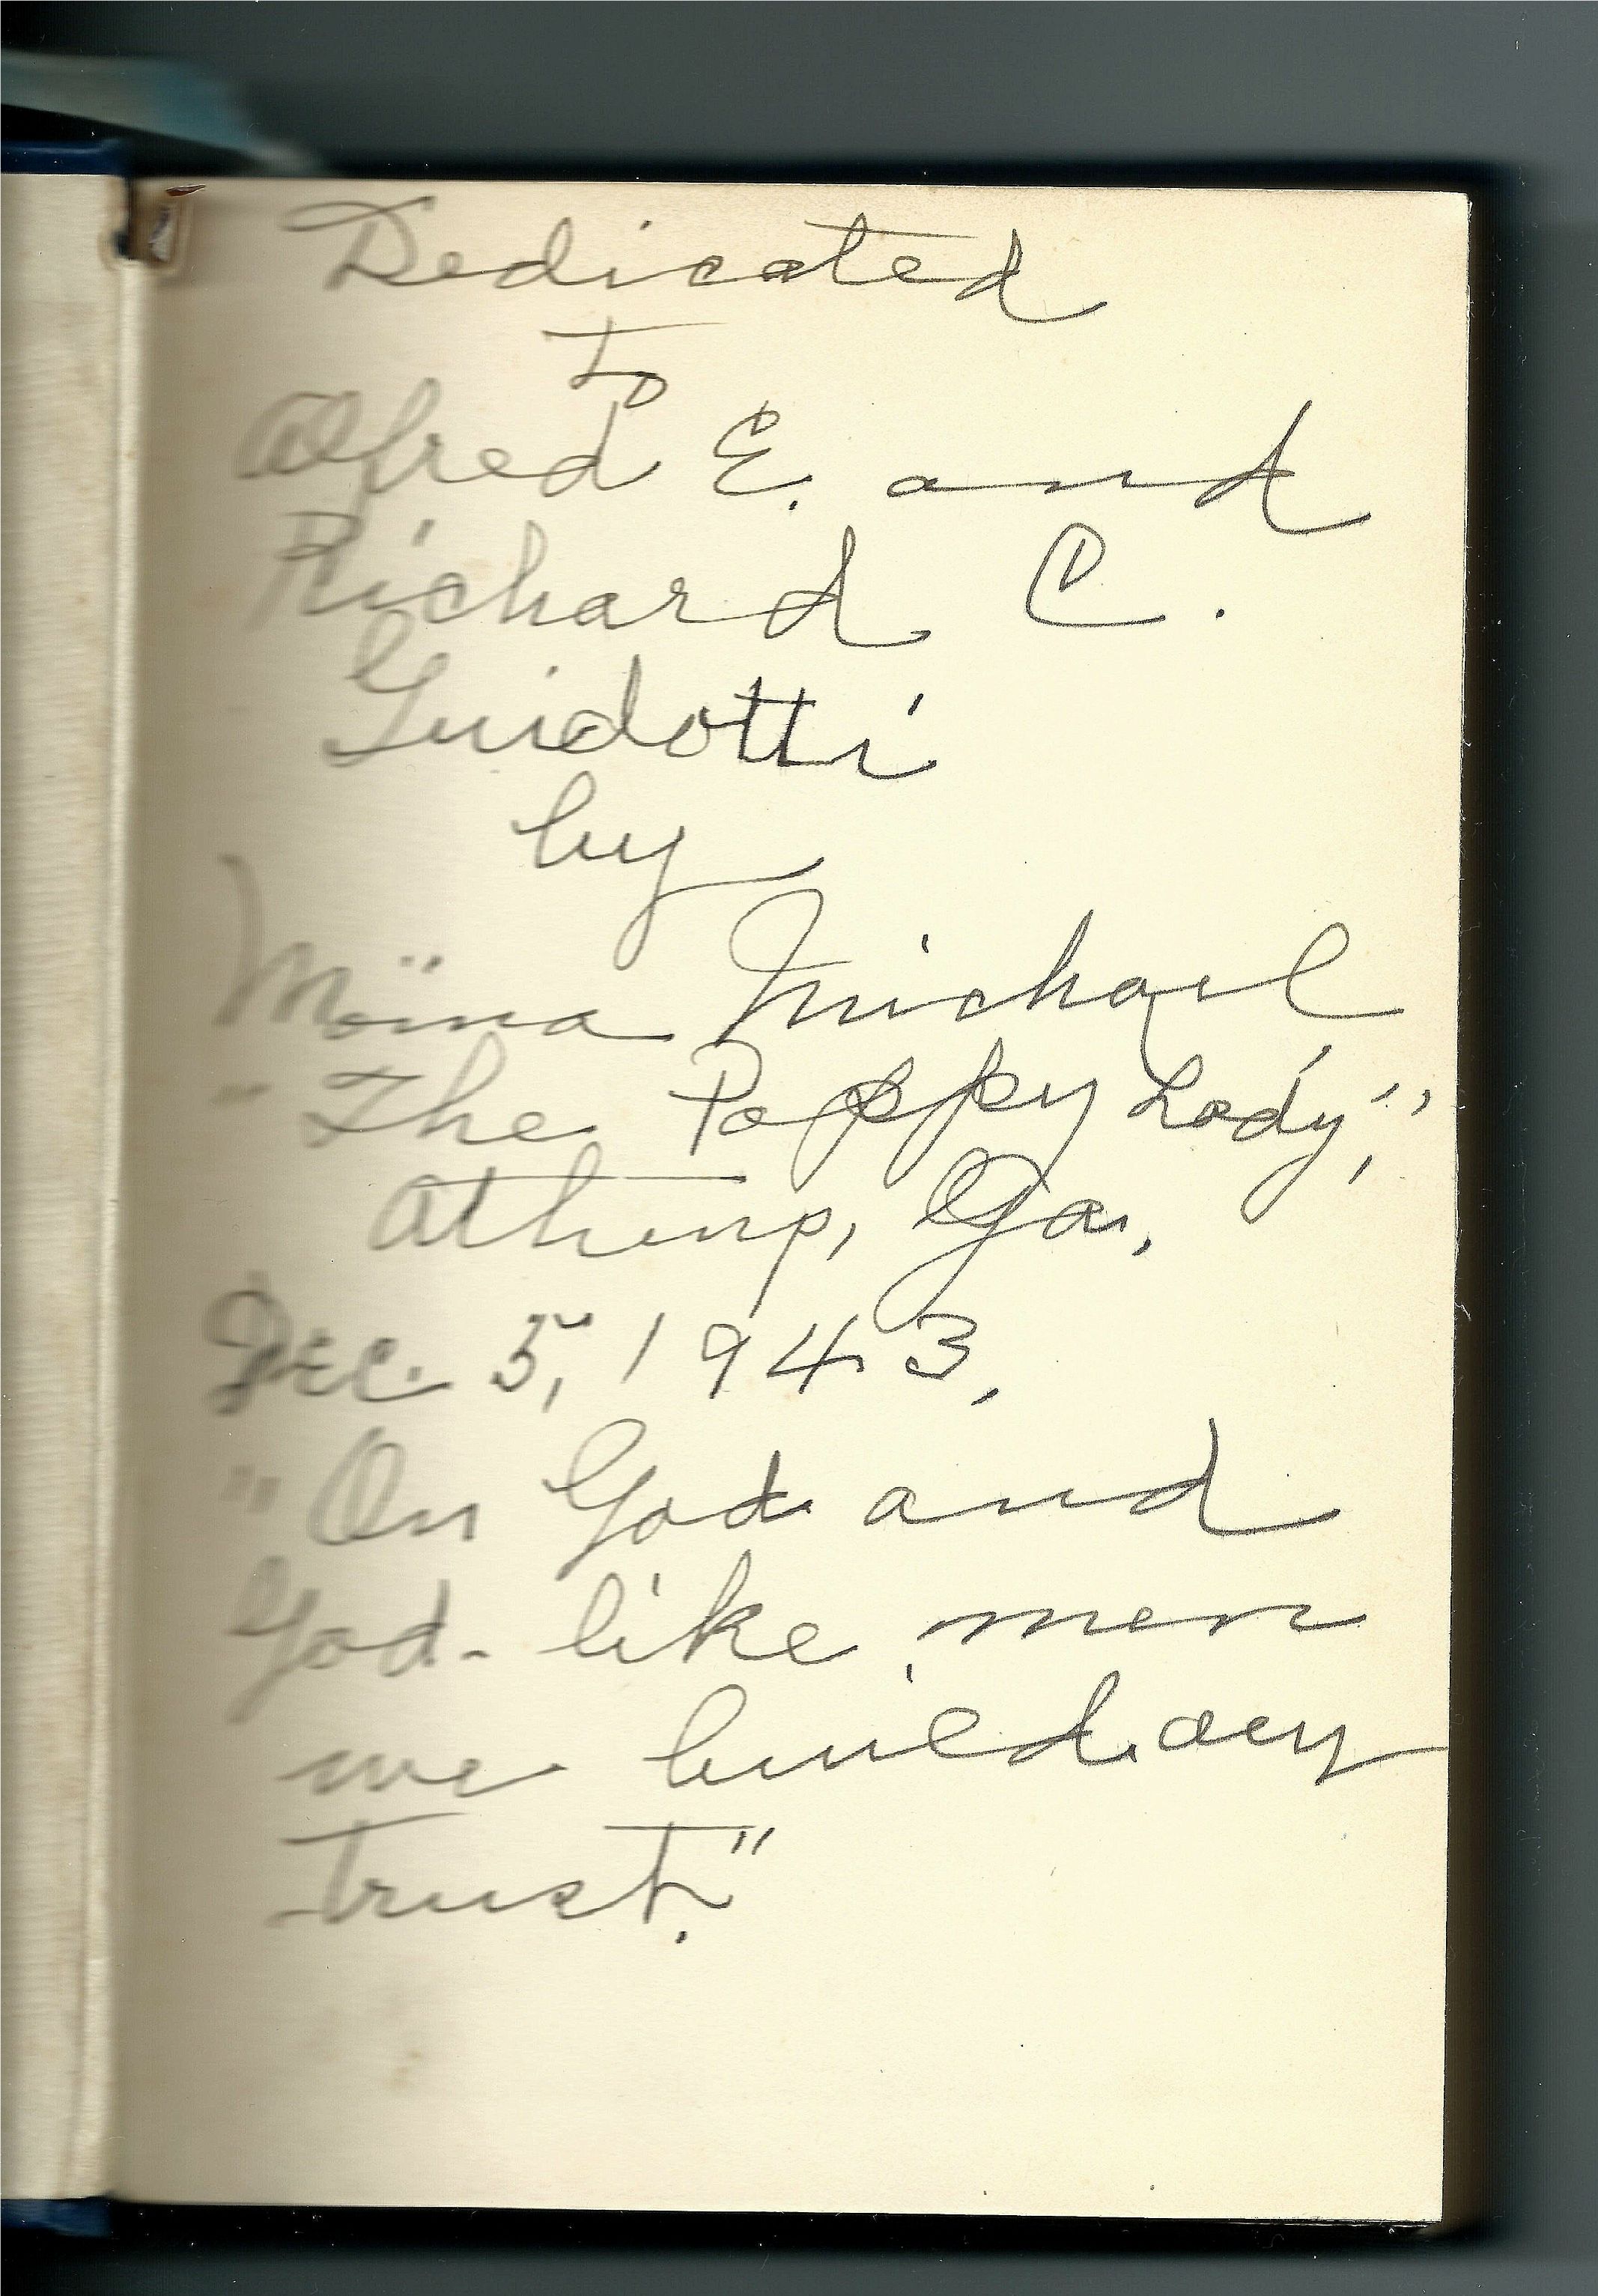 Dedicated
to
Alfred E. and
Richard C.
Guidotti
by
Moïna Michael
"The Poppy Lady,"
Athens, Ga.,
Dec. 5, 1943.
"On God and
God-like men
we build our
trust."